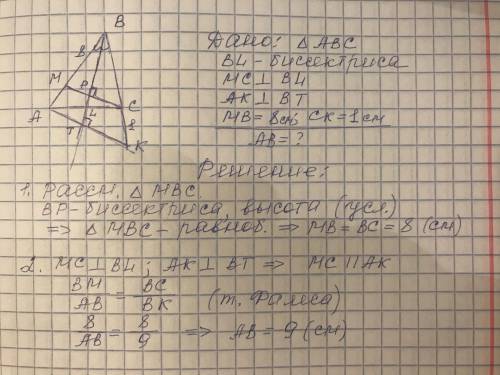 B
8
M
P
A
C
L
1
T
K
Дано: △ABC
BL - биссектриса
MC⊥BL
AK⊥BT
MB = 8 см; CK = 1 см
AB = ?
Решение:
1. Рассм. △MBC.
BP - биссектриса, высота (усл.)
=> △MBC - равноб. => MB = BC = 8 (см)
2. MC⊥BL; AK⊥BT => MC || AK
BM/AB = BC/BK (т. Фалеса)
8/AB = 8/9 => AB = 9 (см)